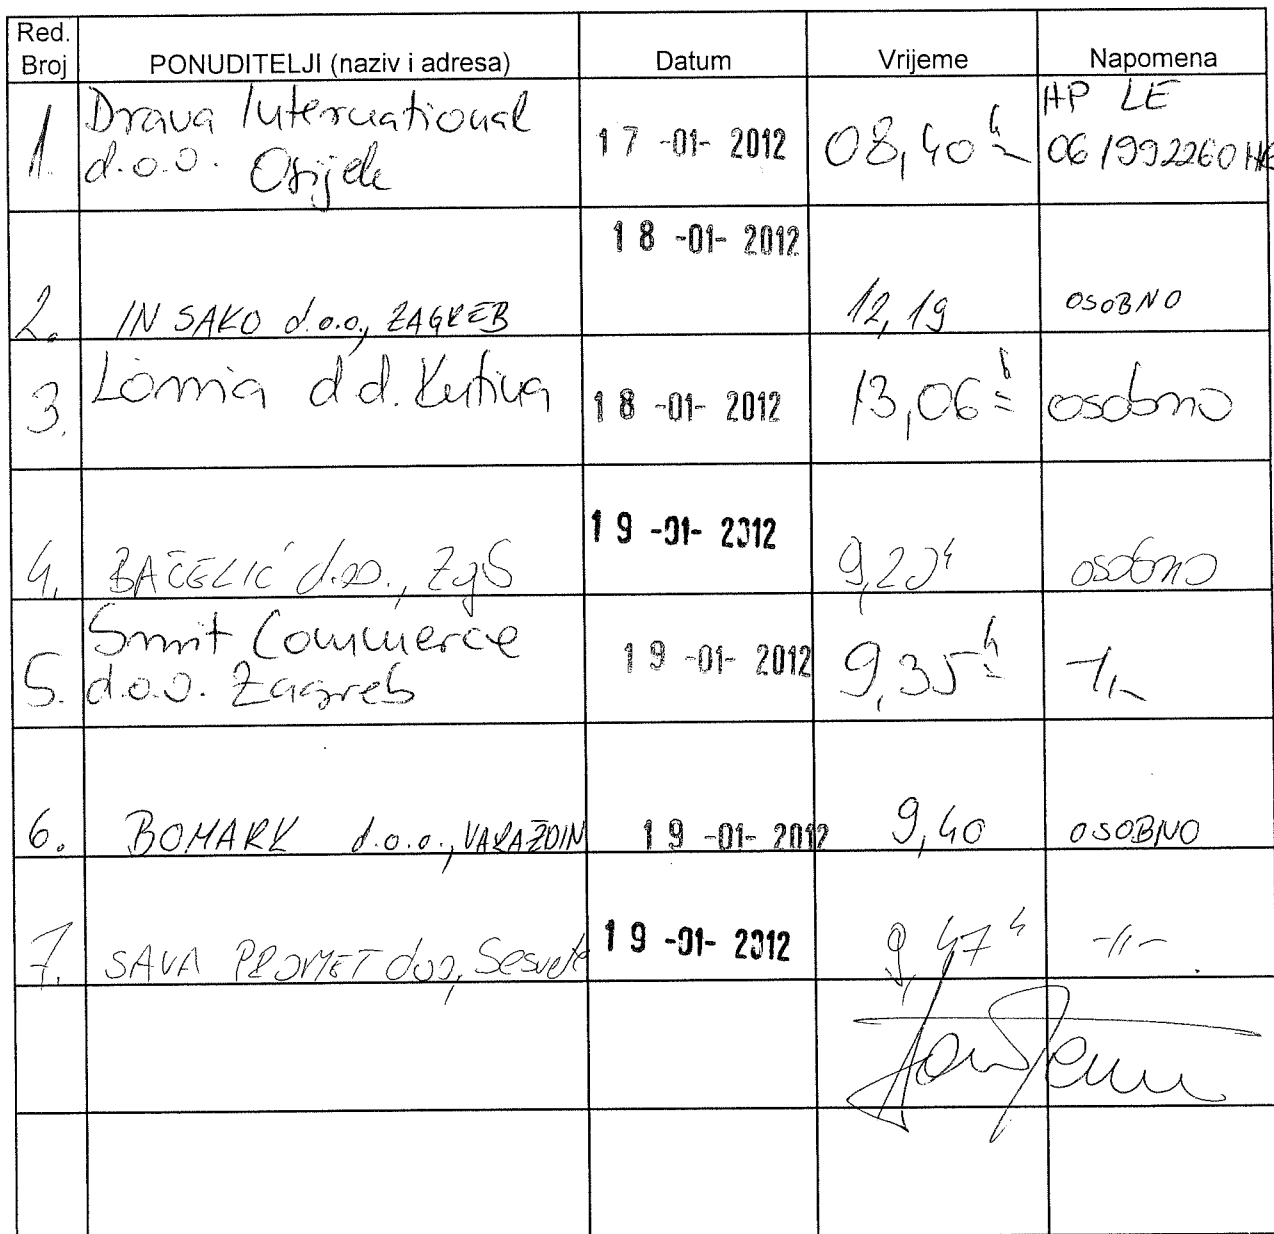 Red. Broj PONUDITELJI (naziv i adresa) Datum Vrijeme Napomena
1. Drava International d.o.o. Osijek 17 -01- 2012 08,40 h HP LE 061992260 HR
2. IN SAKO d.o.o., ZAGREB 18 -01- 2012 12,19 OSOBNO
3. Lonia d.d. Kutina 18 -01- 2012 13,06 h osobno
4. BAČELIĆ d.o.o., Zgb 19 -01- 2012 9,20 h osobno
5. Smit Commerce d.o.o. Zagreb 19 -01- 2012 9,35 h -11-
6. BOMARK d.o.o., VARAŽDIN 19 -01- 2012 9,40 OSOBNO
7. SAVA PROMET doo, Sesvete 19 -01- 2012 9,47 h -11-